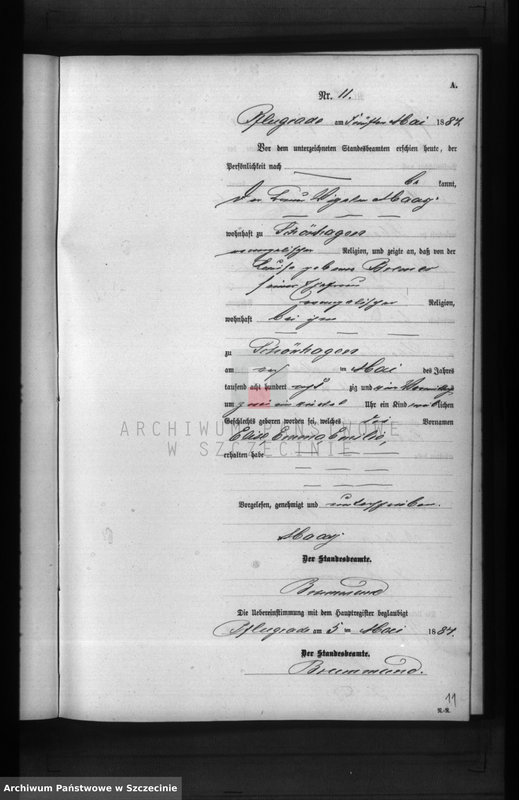 A.
Nr. 11.
Pflugrade am fünften Mai 1884.
Vor dem unterzeichneten Standesbeamten erschien heute, der
Persönlichkeit nach
be kannt,
der
Maag
wohnhaft zu Schönhagen
evangelischer Religion, und zeigte an, daß von der
Luise geborene
seiner Ehefrau
evangelischer Religion,
wohnhaft bei ihm
zu Schönhagen
am ten Mai des Jahres
tausend acht hundert acht zig und vier Vormittags
um zwei ein viertel Uhr ein Kind weiblichen
Geschlechts geboren worden sei, welches die Vornamen
Emma Emilie,
erhalten habe
ARCHIWUM PAŃSTWOWE
W SZCZECINIE
Vorgelesen, genehmigt und unterschrieben.
Maag
Der Standesbeamte.
Die Uebereinstimmung mit dem Hauptregister beglaubigt
Pflugrade am 5 ten Mai 1884.
Der Standesbeamte.
11
R.-R.
Archiwum Państwowe w Szczecinie